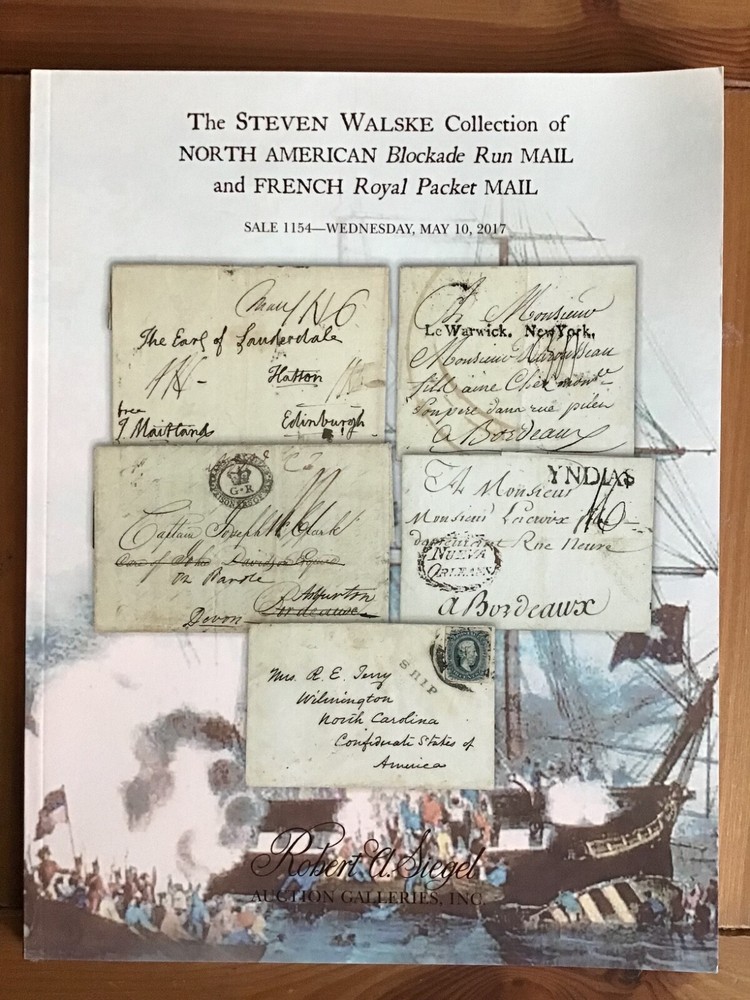 The STEVEN WALSKE Collection of
NORTH AMERICAN Blockade Run MAIL
and FRENCH Royal Packet MAIL
SALE 1154—WEDNESDAY, MAY 10, 2017
The Earl of Lauderdale
Hatton
free
Edinburgh
Monsieur
Le Warwick. NewYork.
Monsieur
a Bordeaux
G R
Captain Joseph
Care of
On Parole
Ashburton
Devon
Bordeaux
YNDIAS
A Monsieur
Monsieur
Rue Neuve
NUEVA
ORLEANS
a Bordeaux
SHIP
Mrs. R. E. Terry
Wilmington
North Carolina
Confederate States of
America
Robert A. Siegel
AUCTION GALLERIES, INC.